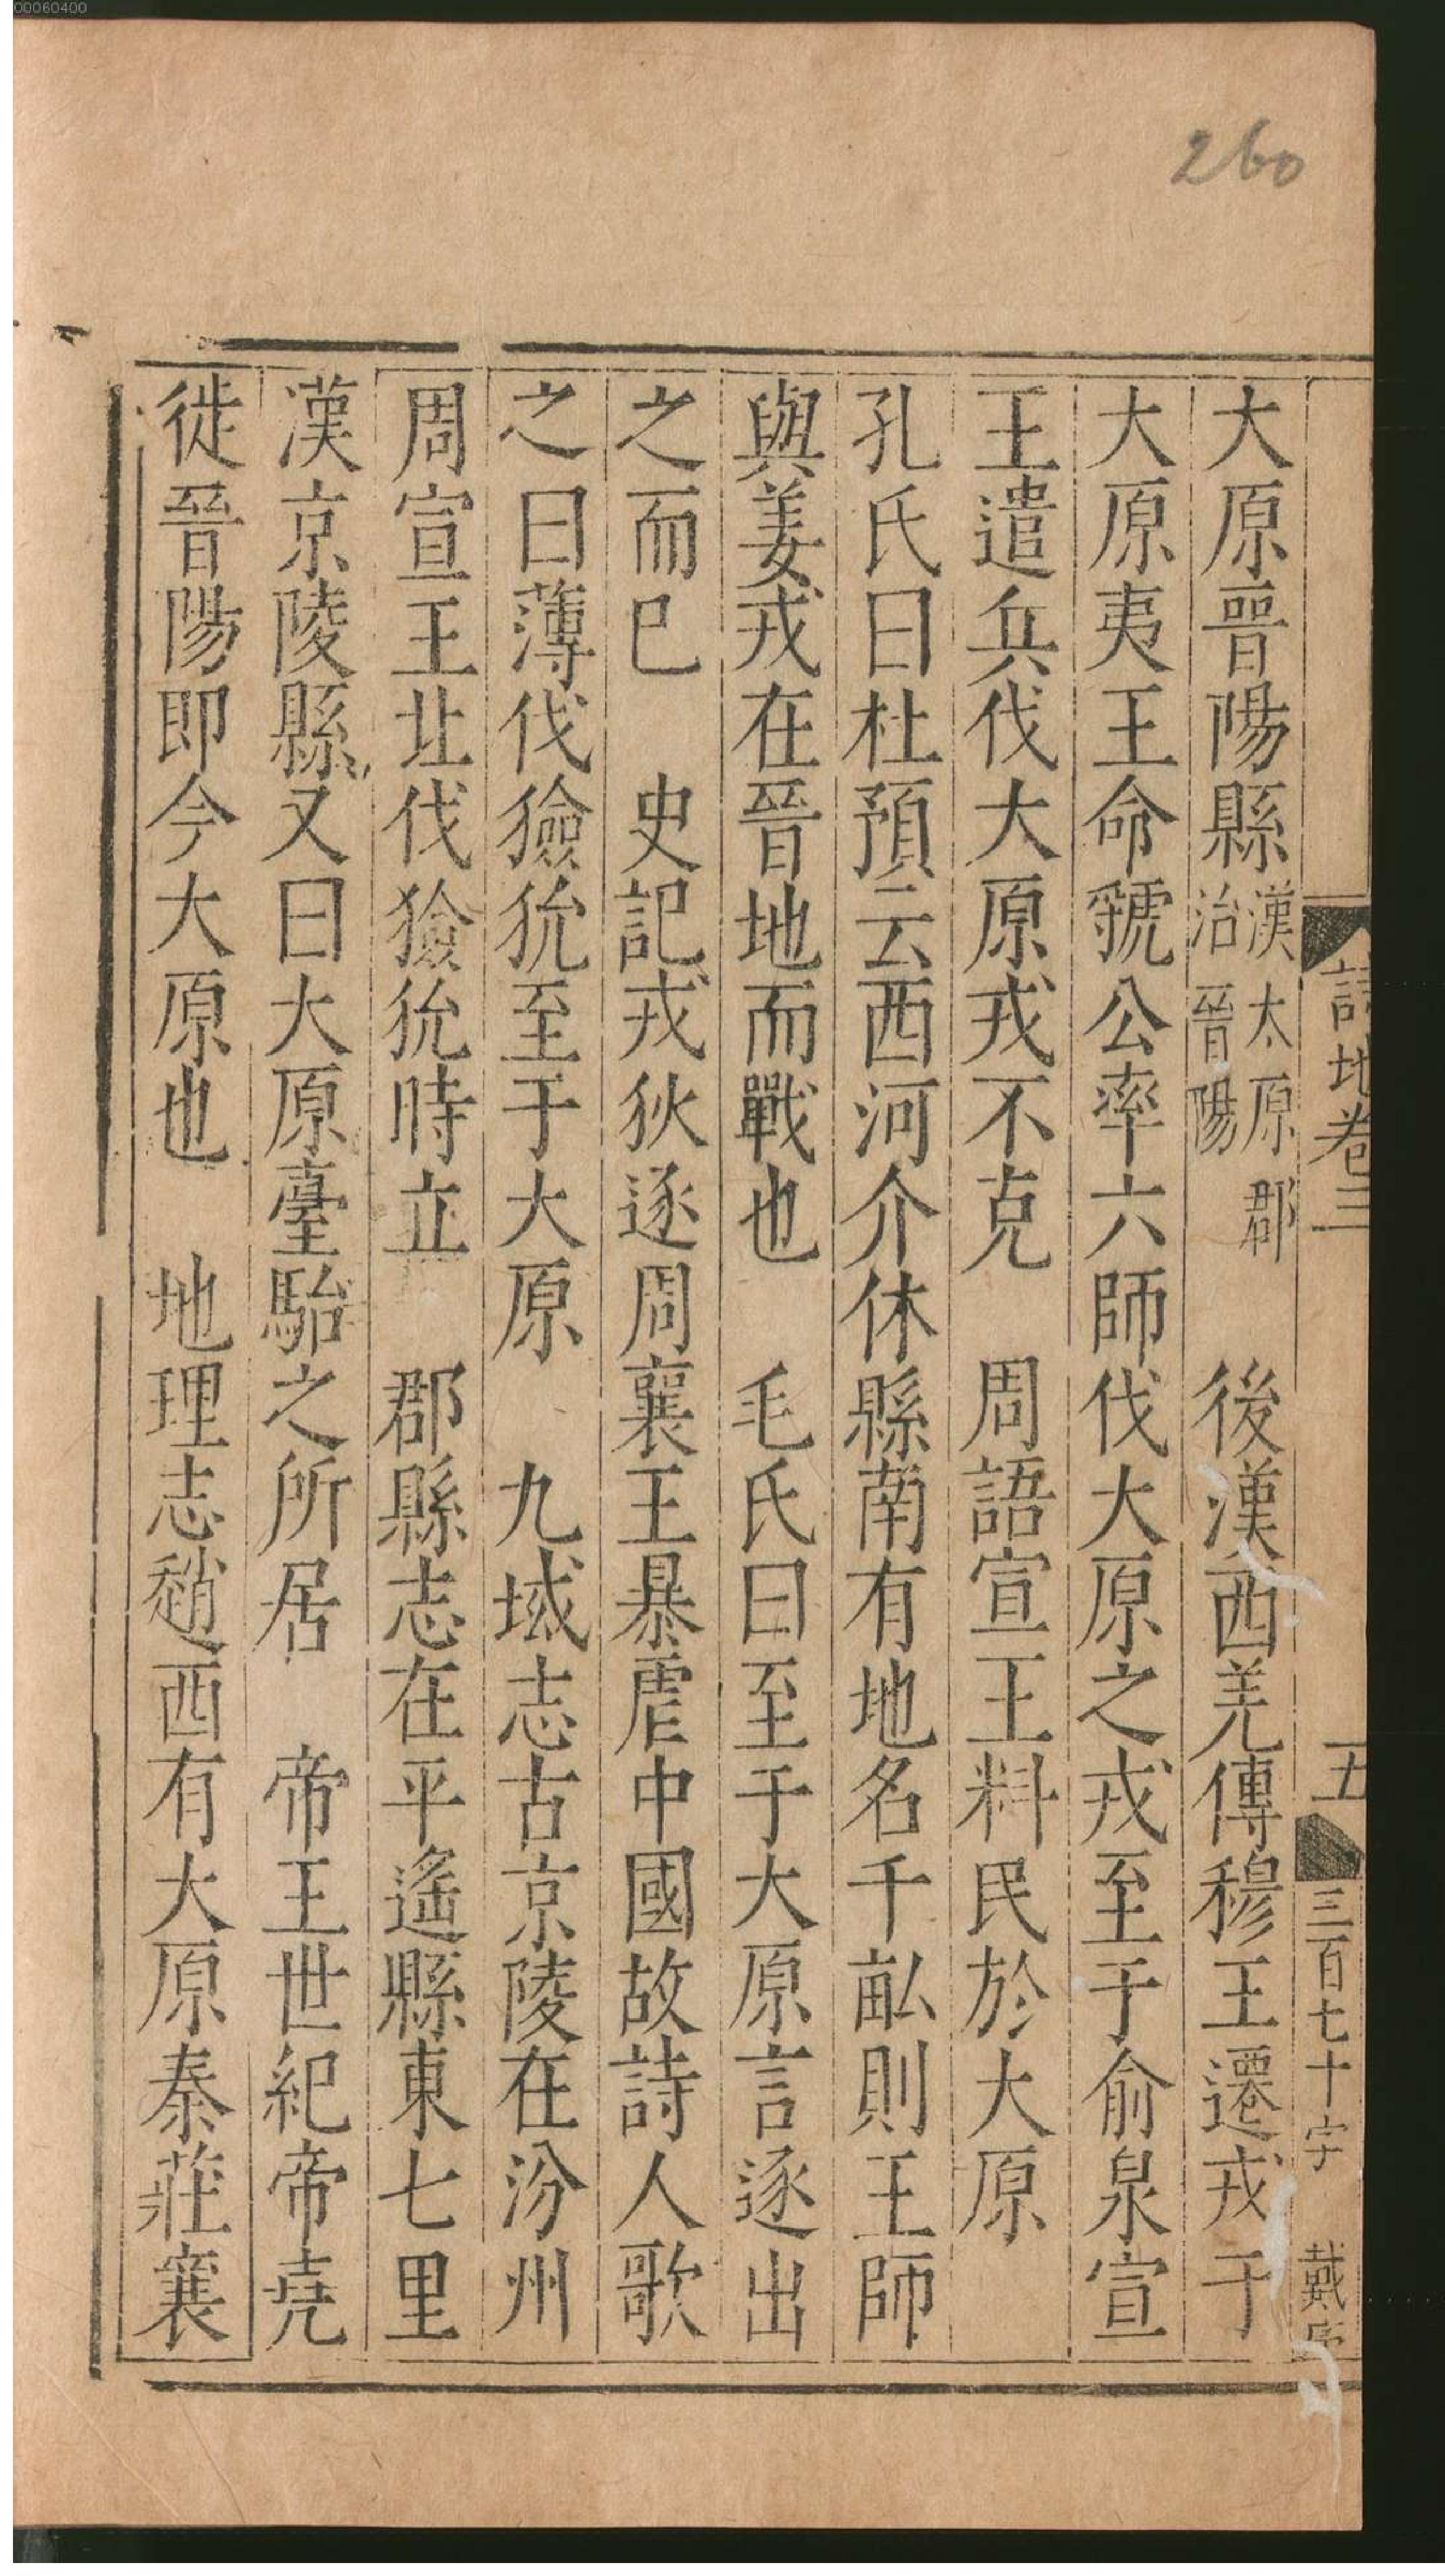 00060400
260
詩地卷三
五
三百七十字
戴
大原晉陽縣漢太原郡治晉陽　後漢西羌傳穆王遷戎于
大原夷王命虢公率六師伐大原之戎至于俞泉宣
王遣兵伐大原戎不克　周語宣王料民於大原
孔氏曰杜預云西河介休縣南有地名千畝則王師
與姜戎在晉地而戰也　毛氏曰至于大原言逐出
之而已　史記戎狄逐周襄王暴虐中國故詩人歌
之曰薄伐獫狁至于大原　九域志古京陵在汾州
周宣王北伐獫狁時立　郡縣志在平遙縣東七里
漢京陵縣又曰大原臺駘之所居　帝王世紀帝堯
徙晉陽即今大原也　地理志趙西有大原秦莊襄